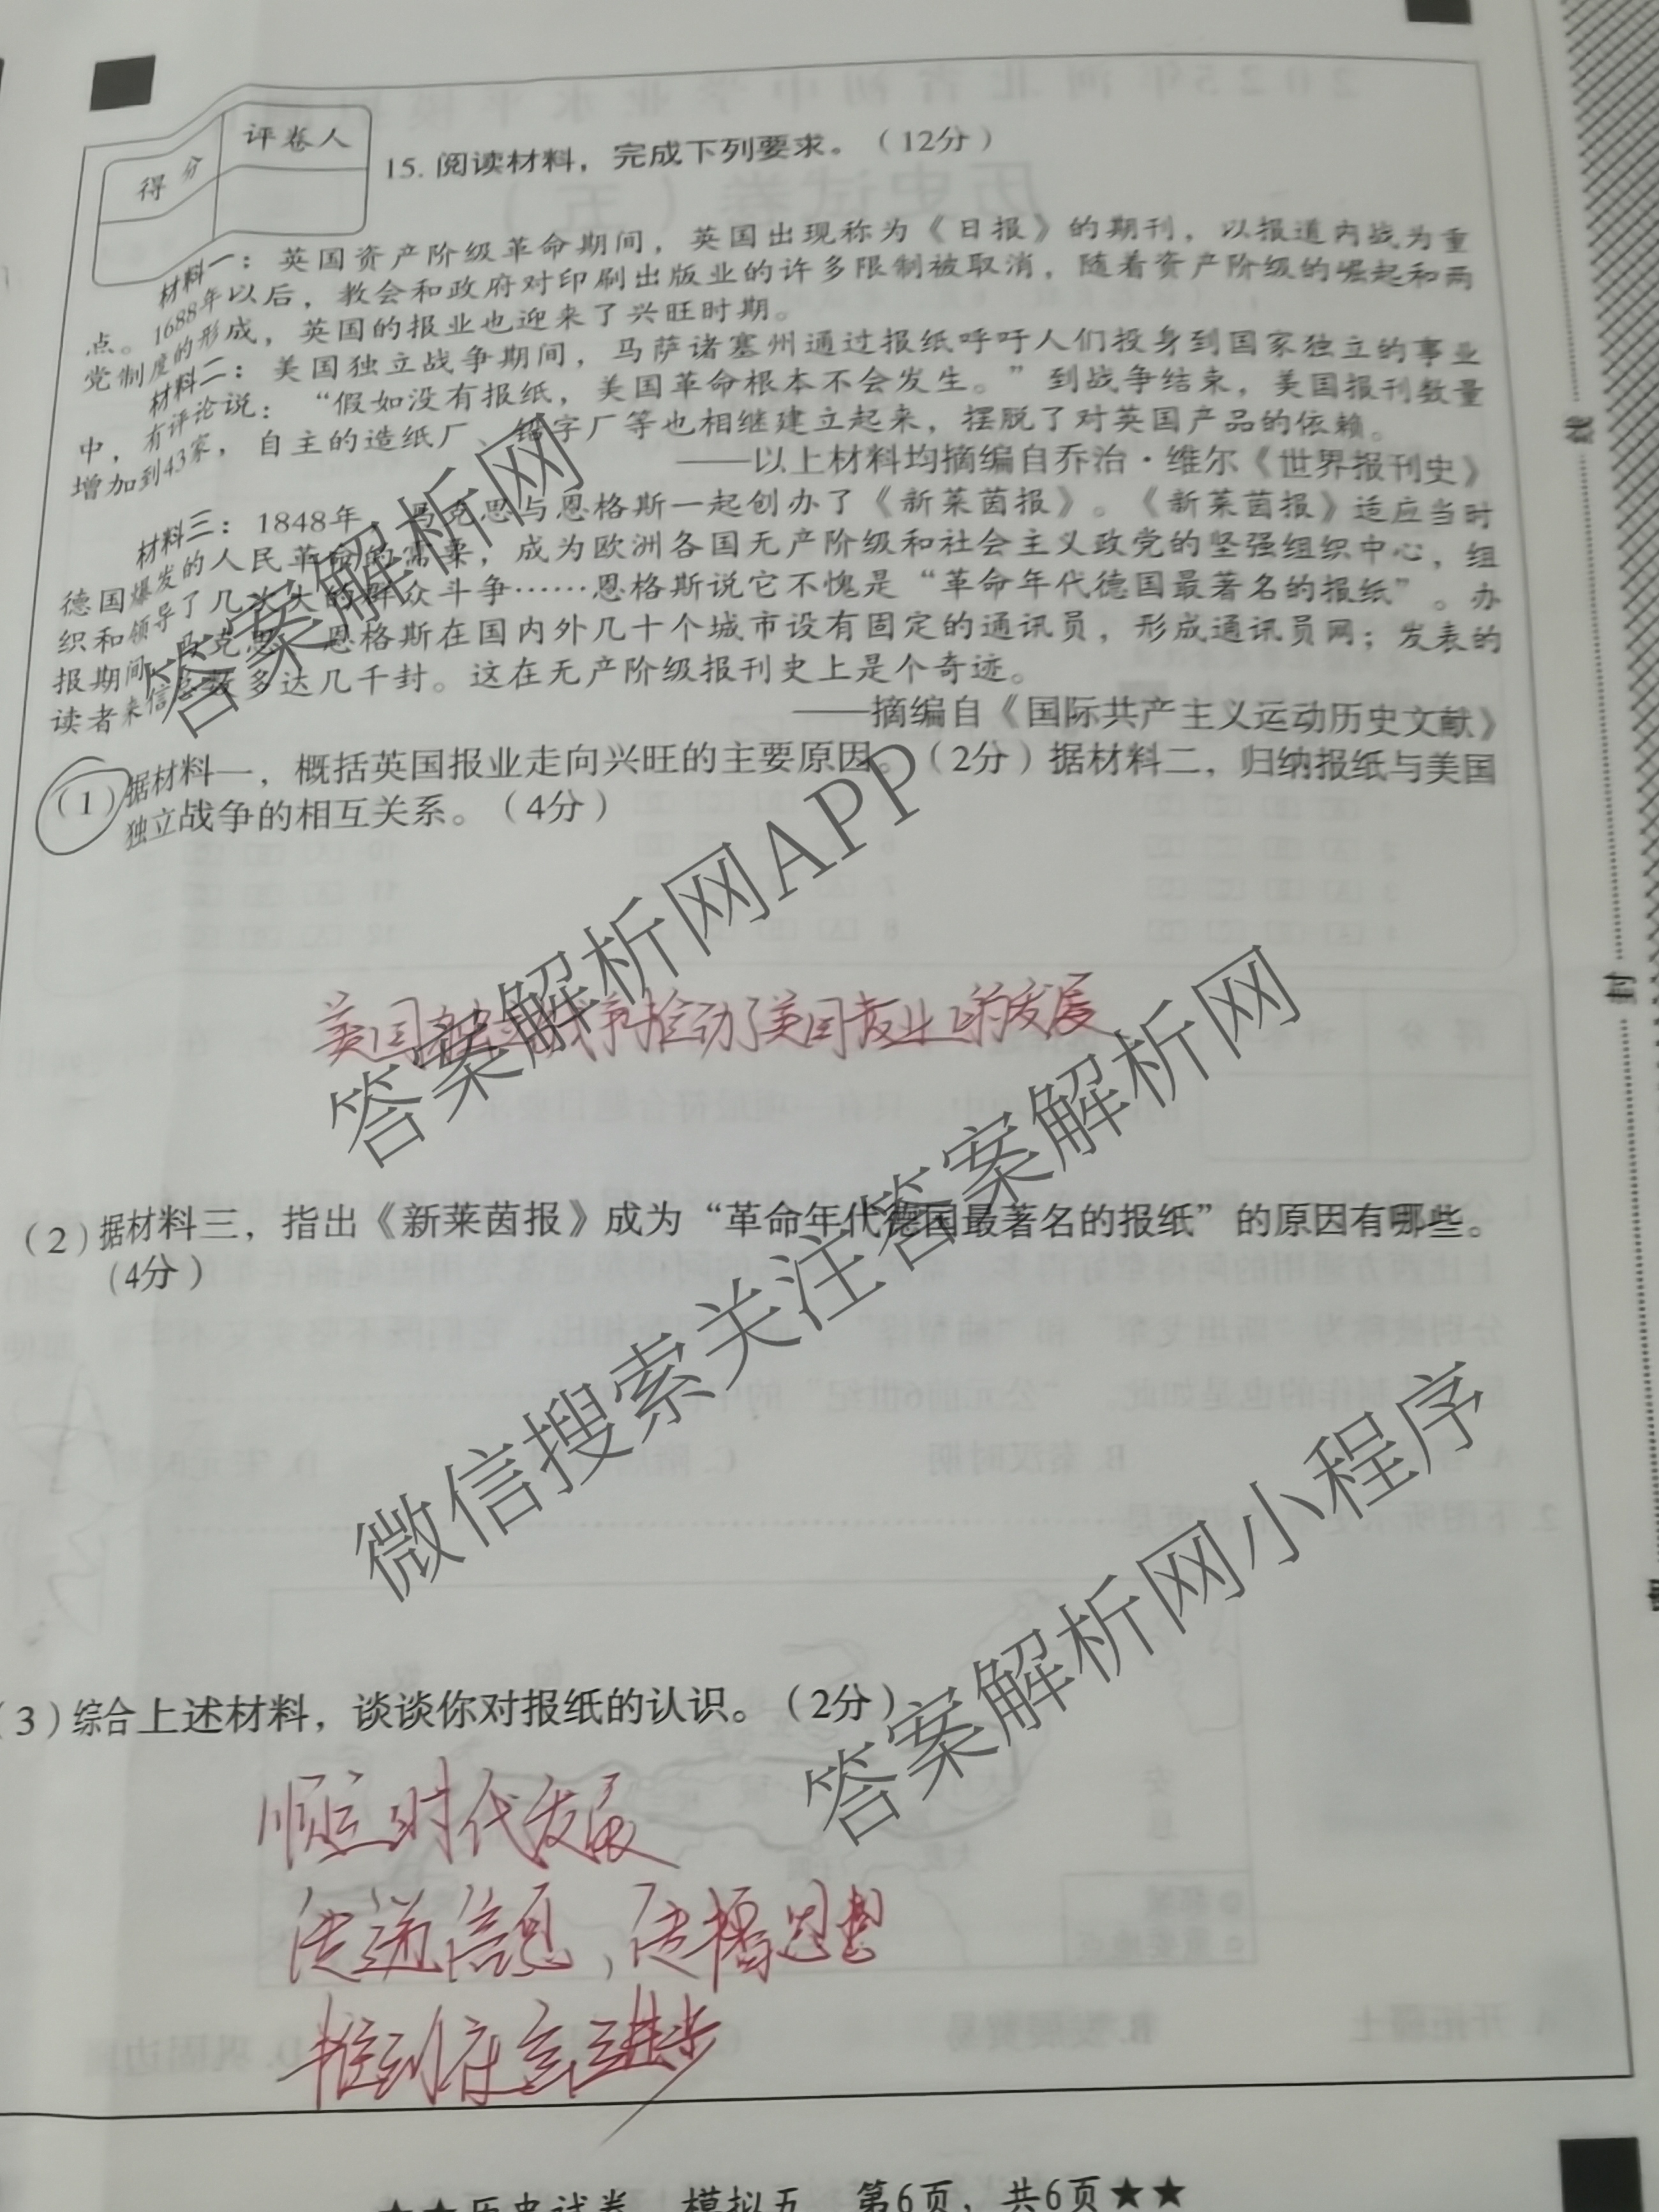 得 分
评卷人
15. 阅读材料，完成下列要求。（12分）
材料一：英国资产阶级革命期间，英国出现称为《日报》的期刊，以报道内战为重
点。1688年以后，教会和政府对印刷出版业的许多限制被取消，随着资产阶级的崛起和两
党制度的形成，英国的报业也迎来了兴旺时期。
材料二：美国独立战争期间，马萨诸塞州通过报纸呼吁人们投身到国家独立的事业
中，有评论说：“假如没有报纸，美国革命根本不会发生。”到战争结束，美国报刊数量
增加到43家，自主的造纸厂、铅字厂等也相继建立起来，摆脱了对英国产品的依赖。
——以上材料均摘编自乔治·维尔《世界报刊史》
材料三：1848年，马克思与恩格斯一起创办了《新莱茵报》。《新莱茵报》适应当时
德国爆发的人民革命的需要，成为欧洲各国无产阶级和社会主义政党的坚强组织中心，组
织和领导了几次大的群众斗争……恩格斯说它不愧是“革命年代德国最著名的报纸”。办
报期间，马克思、恩格斯在国内外几十个城市设有固定的通讯员，形成通讯员网；发表的
读者来信总数多达几千封。这在无产阶级报刊史上是个奇迹。
——摘编自《国际共产主义运动历史文献》
（1）据材料一，概括英国报业走向兴旺的主要原因。（2分）据材料二，归纳报纸与美国
独立战争的相互关系。（4分）
美国独立战争推动了美国报业的发展
（2）据材料三，指出《新莱茵报》成为“革命年代德国最著名的报纸”的原因有哪些。
（4分）
（3）综合上述材料，谈谈你对报纸的认识。（2分）
顺应时代发展
传递信息，传播思想
进步
★★历史试卷 模拟五 第6页，共6页★★
线
封
答案解析网
答案解析网APP
微信搜索关注答案解析网
答案解析网小程序